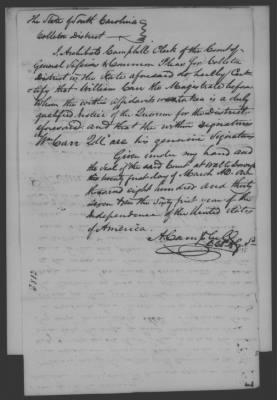 The State of South Carolina
Colleton District
I Archibald Campbell Clerk of the Court of
General Sessions & Common Pleas for Colleton
District in the State aforesaid do hereby Cert
ify that William Carr the Magistrate before
whom the within affidavits was taken is a duly
qualified Justice of the Quorum for the District
aforesaid and that the within Signatures
Wm Carr are his genuine Signature
Given under my hand and
the seal of the said Court at Walterborough
this twenty first day of March AD. one
thousand eight hundred and thirty
seven & in the sixty first year of the
Independence of the United States
of America.
A Campbell